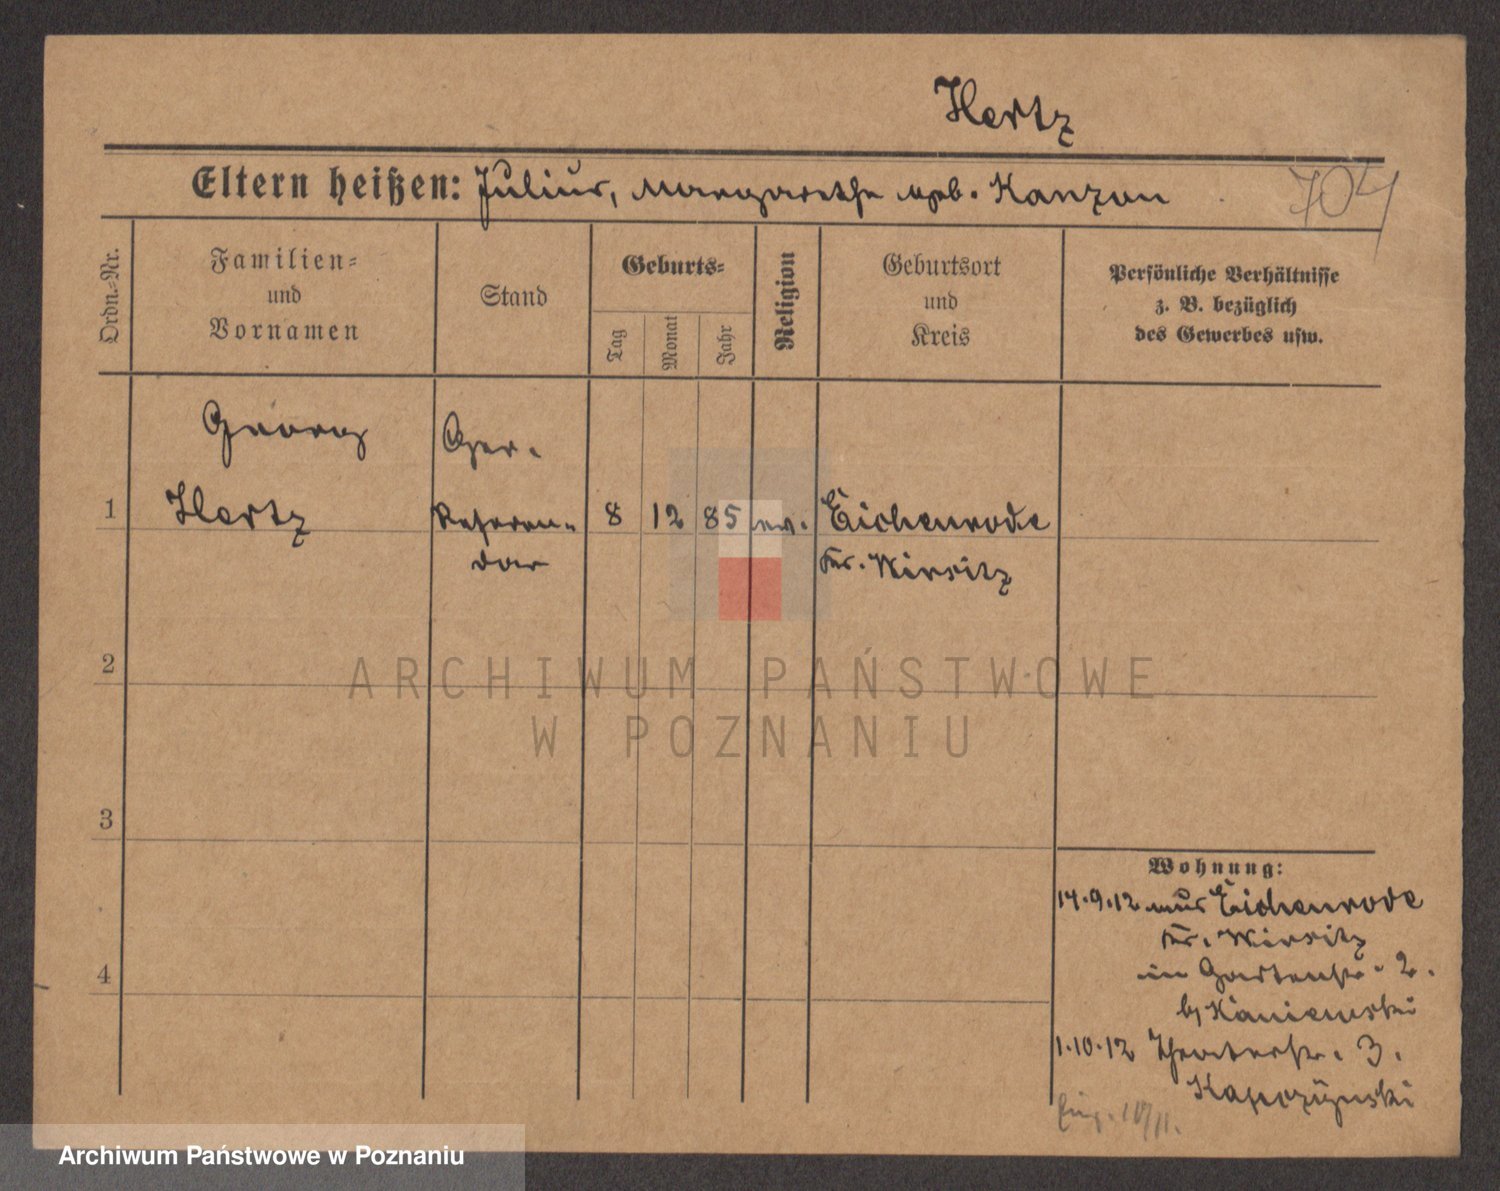 Hertz
Eltern heißen: Julius, Margarethe geb. Kanzow
704
Ordn.-Nr.
Familien-
und
Vornamen
Stand
Geburts-
Tag
Monat
Jahr
Religion
Geburtsort
und
Kreis
Persönliche Verhältnisse
z. B. bezüglich
des Gewerbes usw.
Georg
Ger.
1 Hertz Referen- 8 12 85 ev. Eichenrode
dar Kr. Wirsitz
2
ARCHIWUM PAŃSTWOWE
W POZNANIU
3
Wohnung:
14.9.12 aus Eichenrode
Kr. Wirsitz
4
in Gartenstr. 2.
b/Kaniewski
1.10.12 Theaterstr. 3.
Archiwum Państwowe w Poznaniu